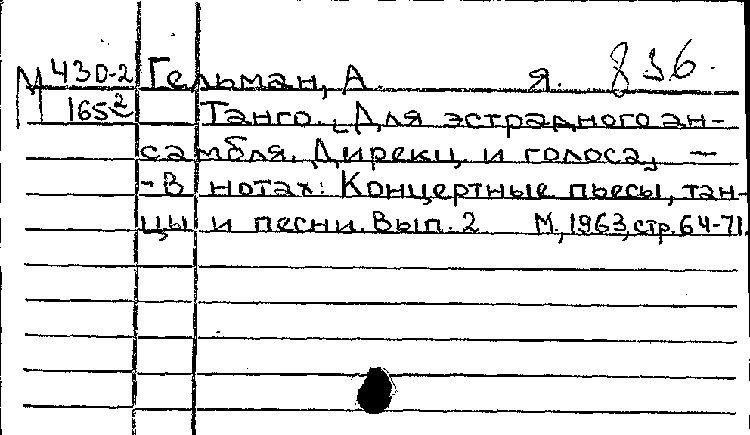 М 430-2 Гельман, А. я. 836.
165² Танго. [Для эстрадного ан-
самбля. Дирекц. и голоса]. —
- В нотах: Концертные пьесы, тан-
цы и песни. Вып. 2 М., 1963, стр. 64-71.